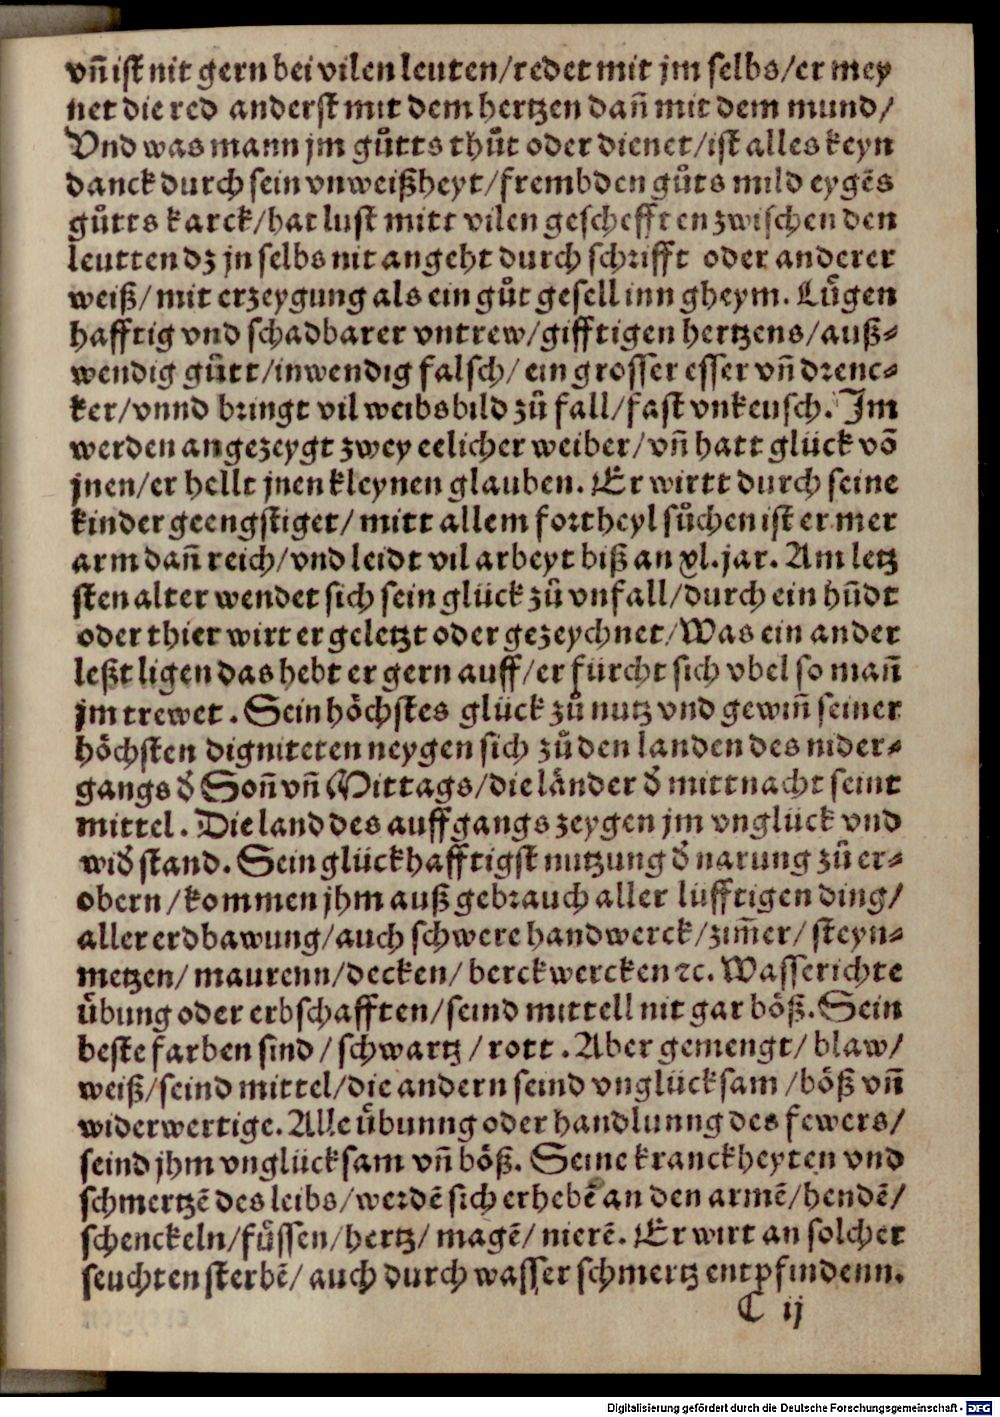 vñ ist nit gern bei vilen leuten/redet mit jm selbs/er mey
net die red anderst mit dem hertzen dañ mit dem mund/
Vnd was mann jm gůtts thůt oder dienet/ist alles keyn
danck durch sein vnweißheyt/frembden gůts mild eygẽs
gůtts karck/hat lust mitt vilen geschefften zwischen den
leutten dz jn selbs nit angeht durch schrifft oder anderer
weiß/mit erzeygung als ein gůt gesell inn gheym. Lůgen
hafftig vnd schadbarer vntrew/gifftigen hertzens/auß-
wendig gůtt/inwendig falsch/ein grosser esser vñ drenc-
ker/vnnd bringt vil weibsbild zů fall/fast vnkeusch. Jm
werden angezeygt zwey eelicher weiber/vñ hatt glück võ
jnen/er hellt jnen kleynen glauben. Er wirtt durch seine
kinder geengstiget/mitt allem fortheyl sůchen ist er mer
arm dañ reich/vnd leidt vil arbeyt biß an xl. jar. Am letz
sten alter wendet sich sein glück zů vnfall/durch ein hũdt
oder thier wirt er geletzt oder gezeychnet/Was ein ander
leßt ligen das hebt er gern auff/er fürcht sich vbel so mañ
jm trewet. Sein höchstes glück zů nutz vnd gewiñ seiner
höchsten digniteten neygen sich zů den landen des nider-
gangs ď Soñ vñ Mittags/die länder ď mittnacht seint
mittel. Die land des auffgangs zeygen jm vnglück vnd
wiď stand. Sein glückhafftigst nutzung ď narung zů er-
obern/kommen jhm auß gebrauch aller lüfftigen ding/
aller erdbawung/auch schwere handwerck/zim̃er/steyn-
metzen/maurenn/decken/berckwercken ꝛc. Wasserichte
übung oder erbschafften/seind mittell nit gar böß. Sein
beste farben sind/schwartz/rott. Aber gemengt/blaw/
weiß/seind mittel/die andern seind vnglücksam/böß vñ
widerwertige. Alle übunng oder handlunng des fewers/
seind jhm vnglücksam vñ böß. Seine kranckheyten vnd
schmertzẽ des leibs/werdẽ sich erhebẽ an den armẽ/hendẽ/
schenckeln/fůssen/hertz/magẽ/nierẽ. Er wirt an solcher
seuchten sterbẽ/auch durch wasser schmertz entpfindenn.
C ij
Digitalisierung gefördert durch die Deutsche Forschungsgemeinschaft - DFG